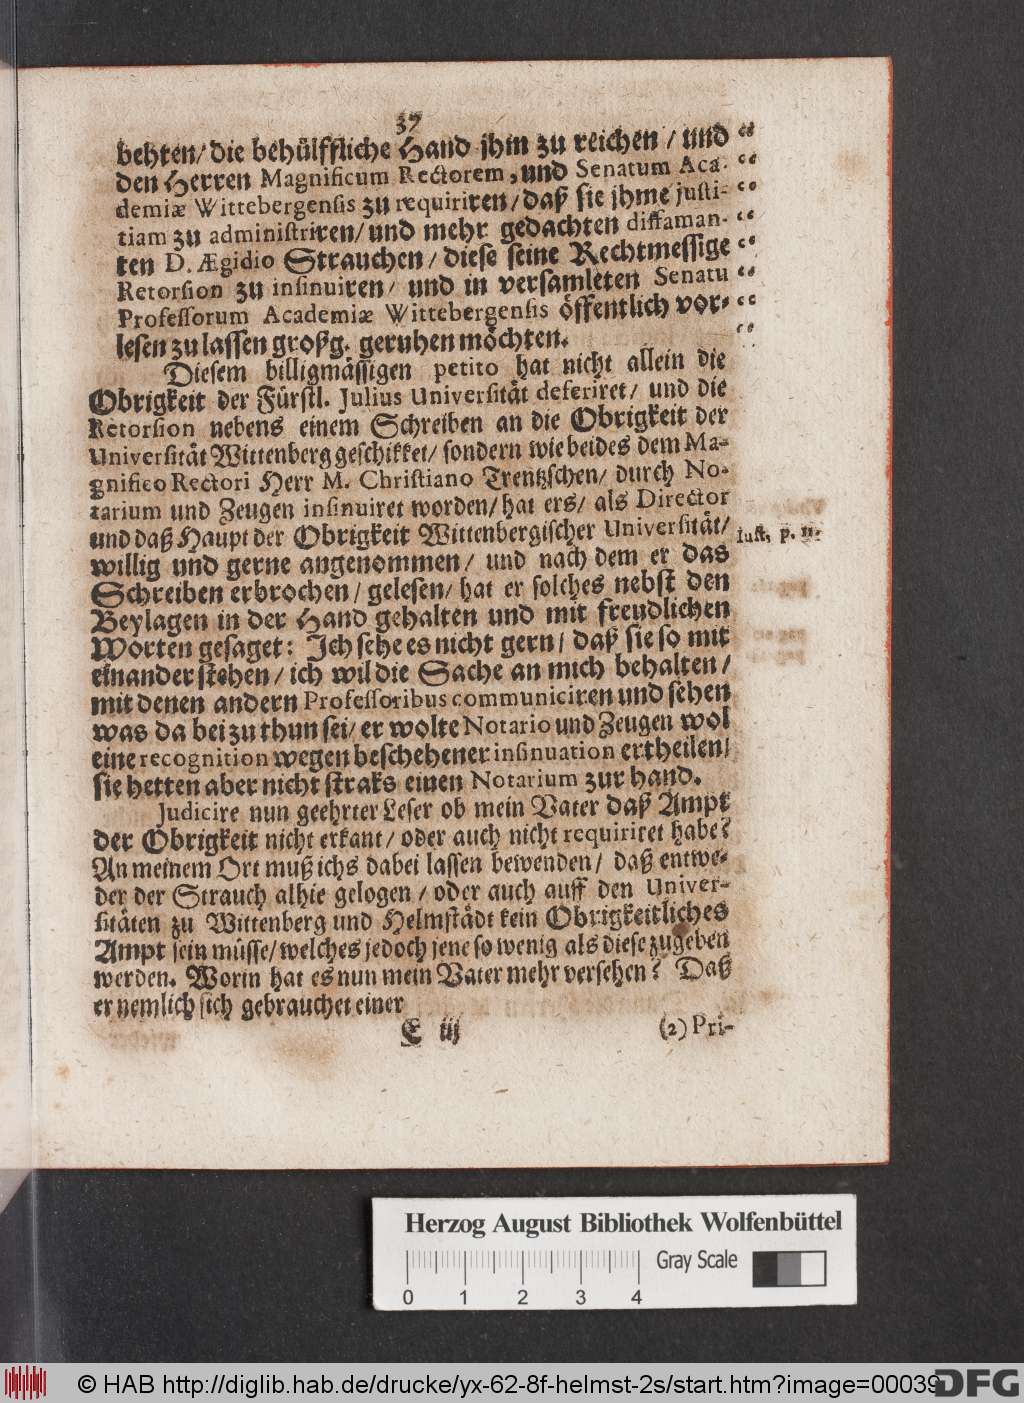 37
behten/ die behülffliche Hand ihm zu reichen / und “
den Herren Magnificum Rectorem, und Senatum Aca- “
demiæ Wittebergensis zu requiriren/ daß sie ihme justi- “
tiam zu administriren/ und mehr gedachten diffaman- “
ten D. Ægidio Strauchen/ diese seine Rechtmessige “
Retorsion zu insinuiren/ und in versamleten Senatu “
Professorum Academiæ Wittebergensis öffentlich vor- “
lesen zu lassen großg. geruhen möchten. “
Diesem billigmässigen petito hat nicht allein die
Obrigkeit der Fürstl. Julius Universität deferiret/ und die
Retorsion nebens einem Schreiben an die Obrigkeit der
Universität Wittenberg geschikket/ sondern wie beides dem Ma-
gnifico Rectori Herr M. Christiano Trentzschen/ durch No-
tarium und Zeugen insinuiret worden/ hat ers/ als Director
und daß Haupt der Obrigkeit Wittenbergischer Universität/ Just. p. 11.
willig und gerne angenommen/ und nach dem er das
Schreiben erbrochen/ gelesen/ hat er solches nebst den
Beylagen in der Hand gehalten und mit freudlichen
Worten gesaget: Ich sehe es nicht gern/ daß sie so mit
einander stehen/ ich wil die Sache an mich behalten/
mit denen andern Professoribus communiciren und sehen
was da bei zu thun sei/ er wolte Notario und Zeugen wol
eine recognition wegen beschehener insinuation ertheilen/
sie hetten aber nicht straks einen Notarium zur hand.
Judicire nun geehrter Leser ob mein Vater daß Ampt
der Obrigkeit nicht erkant/ oder auch nicht requiriret habe?
An meinem Ort muß ichs dabei lassen bewenden/ daß entwe-
der der Strauch alhie gelogen/ oder auch auff den Univer-
sitäten zu Wittenberg und Helmstädt kein Obrigkeitliches
Ampt sein müsse/ welches jedoch jene so wenig als diese zugeben
werden. Worin hat es nun mein Vater mehr versehen? Daß
er nemlich sich gebrauchet einer
E iij (2) Pri-
Herzog August Bibliothek Wolfenbüttel
Gray Scale
0 1 2 3 4
© HAB http://diglib.hab.de/drucke/yx-62-8f-helmst-2s/start.htm?image=00039
DFG